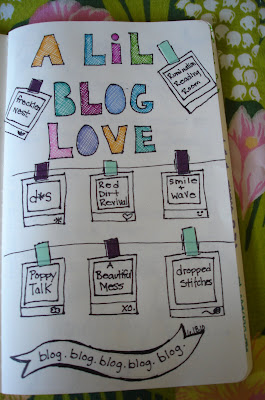 A LiL
BLOG
LOVE
freckles
nest
Reading
Room
d*s
Red
Dirt
Revival
smile
+
wave
Poppy
Talk
A
Beautiful
Mess
XO.
dropped
stitches
blog. blog. blog. blog. blog.